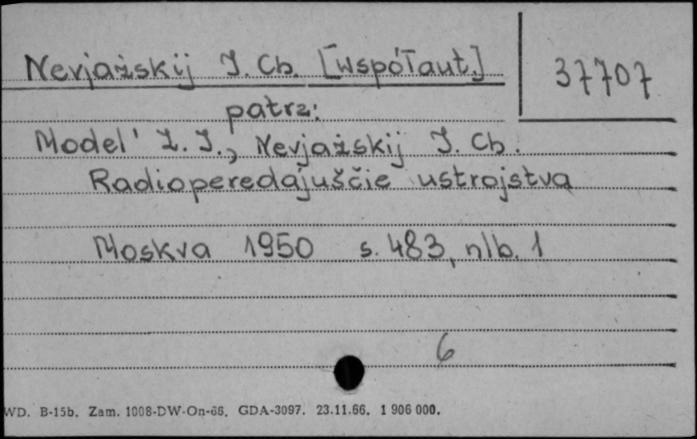 Nevjażskij I. Ch. [współaut.]
37707
patrz:
Model' Z. I., Nevjażskij I. Ch.
Radioperedajuščie ustrojstva
Moskva 1950 s. 483, nlb. 1
6
WD. B-15b. Zam. 1008-DW-On-66. GDA-3097. 23.11.66. 1 906 000.